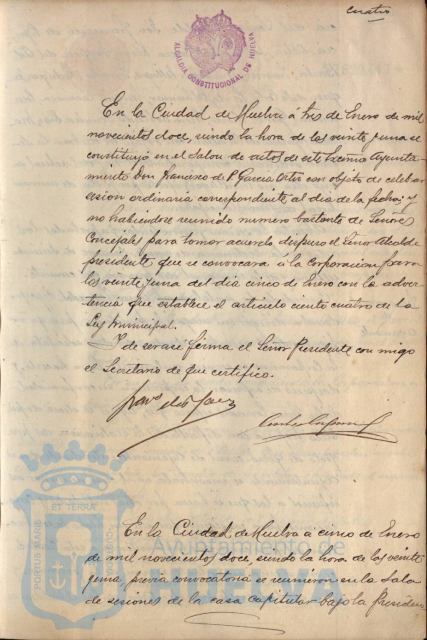 cuatro
ALCALDIA CONSTITUCIONAL DE HUELVA
En la Ciudad de Huelva á tres de Enero de mil
novecientos doce, siendo la hora de las veinte y una se
constituyó en el Salon de actos de este Excmo Ayunta-
miento Don Francisco de P. Garcia Ortiz con objeto de celebrar
sesion ordinaria correspondiente al dia de la fecha; y
no habiendose reunido numero bastante de Señores
Concejales para tomar acuerdo dispuso el Señor Alcalde
presidente que se convocara á la Corporacion para
las veinte y una del dia cinco de Enero con la adver-
tencia que establece el articulo ciento cuatro de la
Ley Municipal.
Y de ser asi firma el Señor Presidente con migo
el Secretario de que certifico.
En la Ciudad de Huelva a cinco de Enero
de mil novecientos doce, siendo la hora de las veinte
y una, previa convocatoria se reunieron en la Sala
de sesiones de la casa capitular bajo la Presiden
PORTUS MARIS ET TERRAE CUSTODIA
Ayuntamiento de
HUELVA